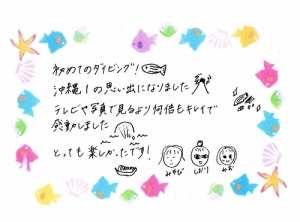 初めてのダイビング!
沖縄1の思い出になりました
テレビや写真で見るより何倍もキレイで
発動しました
とっても楽しかったです!
みさき しおり みお